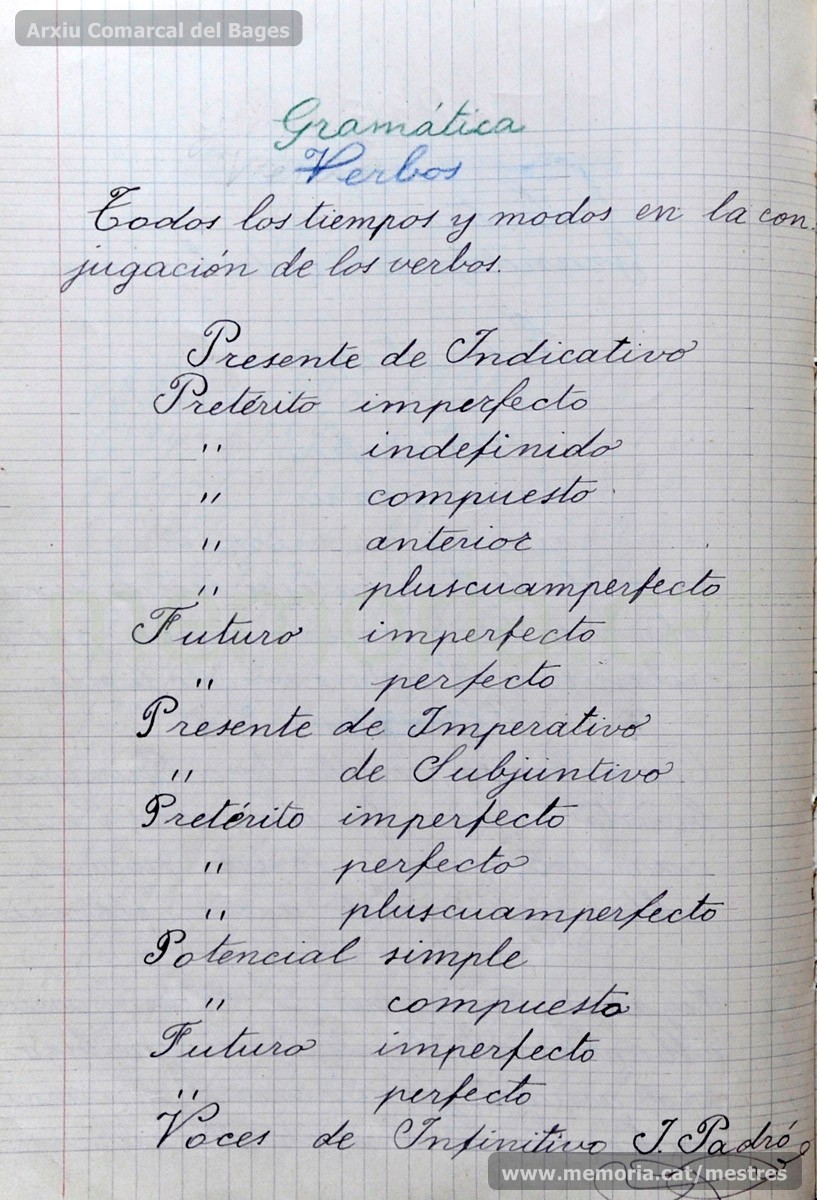 Arxiu Comarcal del Bages
Gramática
Verbos
Todos los tiempos y modos en la con-
jugación de los verbos.
Presente de Indicativo
Pretérito imperfecto
" indefinido
" compuesto
" anterior
" pluscuamperfecto
Futuro imperfecto
" perfecto
Presente de Imperativo
" de Subjuntivo
Pretérito imperfecto
" perfecto
" pluscuamperfecto
Potencial simple
" compuesto
Futuro imperfecto
" perfecto
Voces de Infinitivo J. Padró
www.memoria.cat/mestres